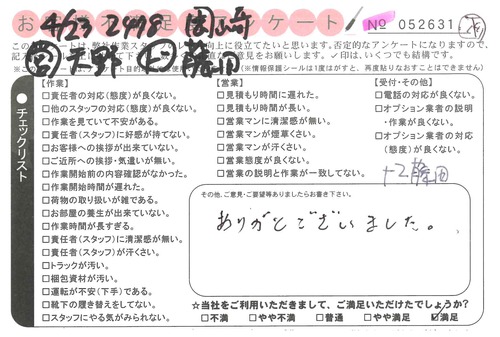 お客様満足度アンケート
4/23 2998 岡崎
№ 052631
このアンケートは、弊社作業スタッフの
向上に役立てたいと思います。否定的なアンケートになりますので、
ご意見をお願いします。✓印は、いくつでも結構です。
(※情報保護シールは1度はがすと、再度貼りなおすことはできません)
チェックリスト
【作業】
□責任者の対応(態度)が良くない。
□他のスタッフの対応(態度)が良くない。
□作業を見ていて不安がある。
□責任者(スタッフ)に好感が持てない。
□お客様への挨拶が出来ていない。
□ご近所への挨拶・気遣いが無い。
□作業開始前の内容確認がなかった。
□作業開始時間が遅れた。
□荷物の取り扱いが雑である。
□お部屋の養生が出来ていない。
□作業時間が長すぎる。
□責任者(スタッフ)に清潔感が無い。
□責任者(スタッフ)が汗くさい。
□トラックが汚い。
□梱包資材が汚い。
□運転が不安(下手)である。
□靴下の履き替えをしてない。
□スタッフにやる気がみられない。
【営業】
□見積もり時間に遅れた。
□見積もり時間が長い。
□営業マンに清潔感が無い。
□営業マンが煙草くさい。
□営業マンが汗くさい。
□営業態度が良くない。
□営業の説明と作業が一致してない。
【受付・その他】
□電話の対応が良くない。
□オプション業者の説明
・作業が良くない。
□オプション業者の対応
(態度)が良くない。
その他、ご意見・ご要望等ありましたらお書き下さい。
ありがとございました。
☆当社をご利用いただきまして、ご満足いただけたでしょうか?
□不満 □やや不満 □普通 □やや満足 ☑満足